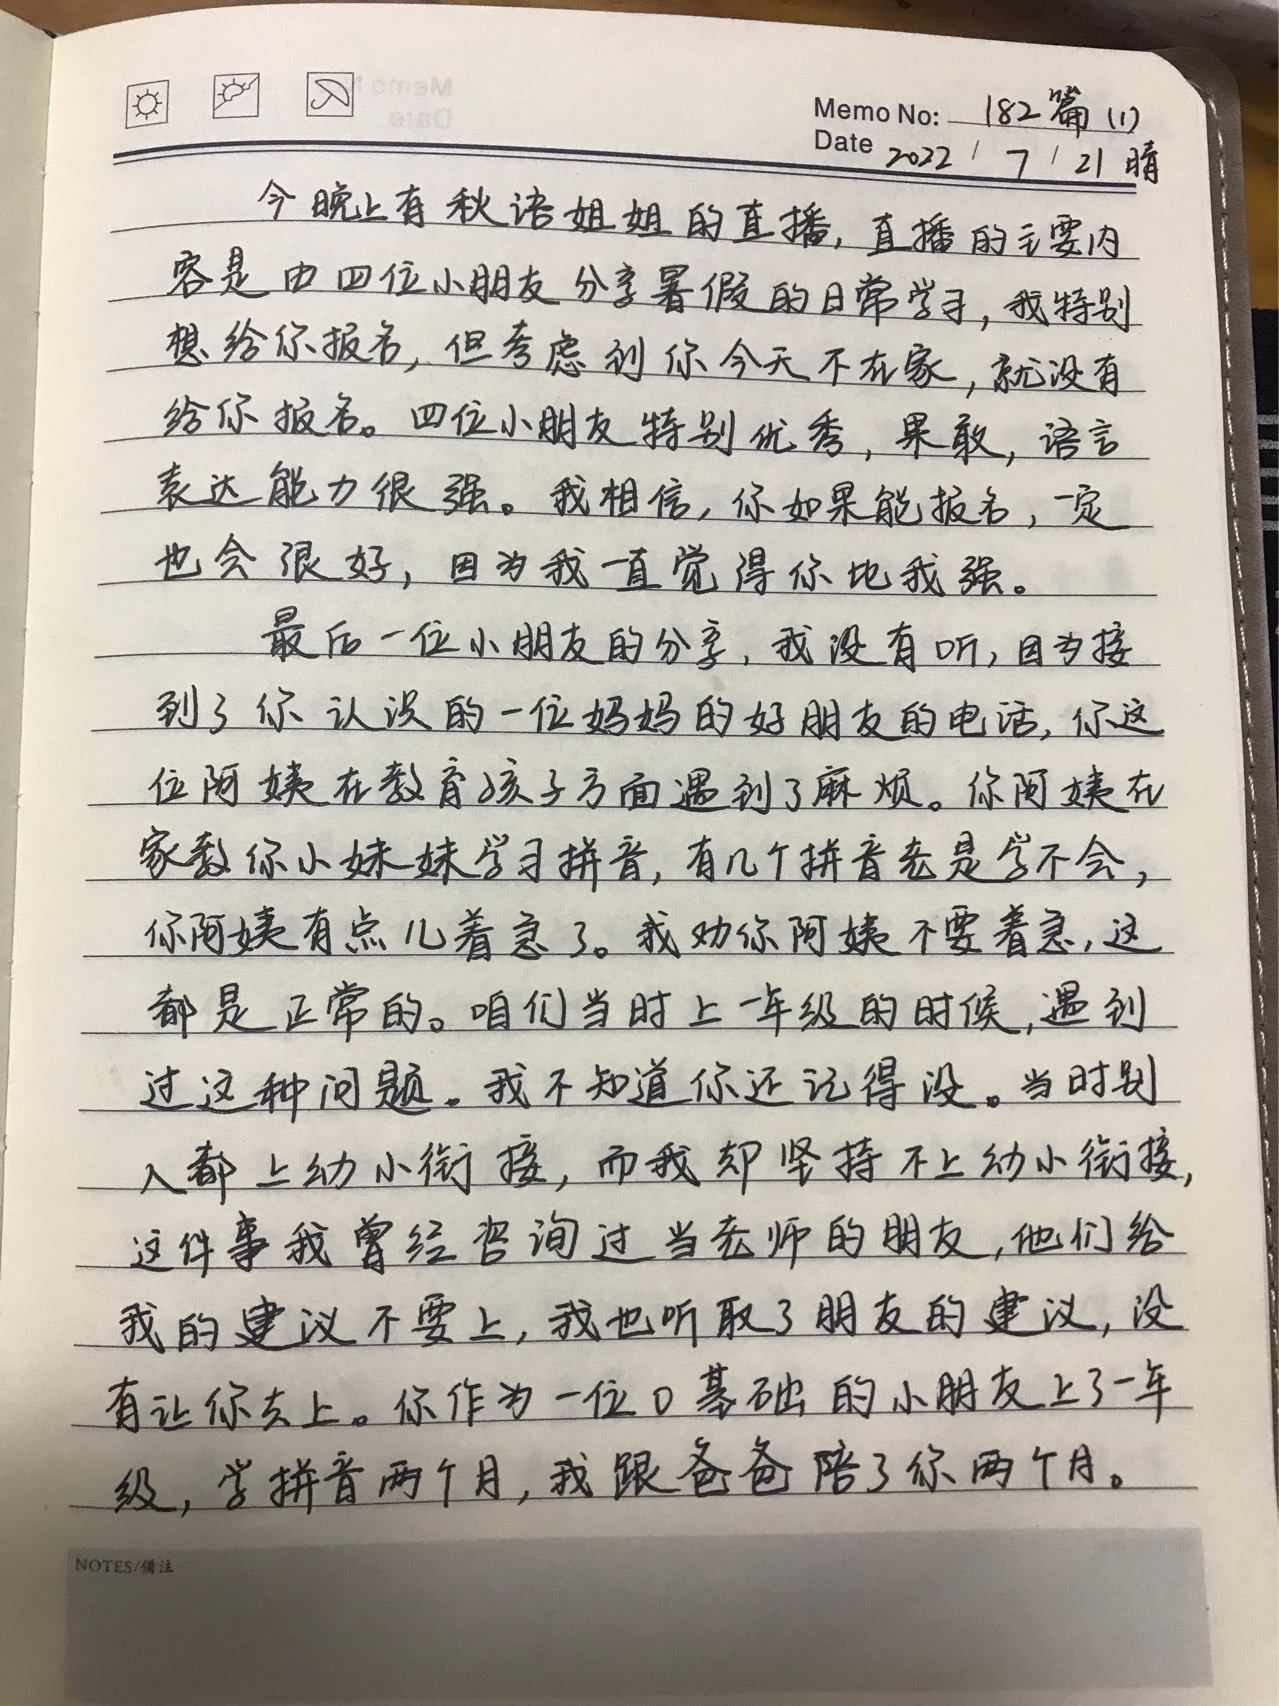 Memo No: 182篇(1)
Date 2022 / 7 / 21 晴
今晚上有秋语姐姐的直播，直播的主要内
容是由四位小朋友分享暑假的日常学习，我特别
想给你报名，但考虑到你今天不在家，就没有
给你报名。四位小朋友特别优秀，果敢，语言
表达能力很强。我相信，你如果能报名，一定
也会很好，因为我一直觉得你比我强。
最后一位小朋友的分享，我没有听，因为接
到了你认识的一位妈妈的好朋友的电话，你这
位阿姨在教育孩子方面遇到了麻烦。你阿姨在
家教你小妹妹学习拼音，有几个拼音老是学不会，
你阿姨有点儿着急了。我劝你阿姨不要着急，这
都是正常的。咱们当时上一年级的时候，遇到
过这种问题。我不知道你还记得没。当时别
人都上幼小衔接，而我却坚持不上幼小衔接，
这件事我曾经咨询过当老师的朋友，他们给
我的建议不要上，我也听取了朋友的建议，没
有让你去上。你作为一位0基础的小朋友上了一年
级，学拼音两个月，我跟爸爸陪了你两个月。
NOTES/备注